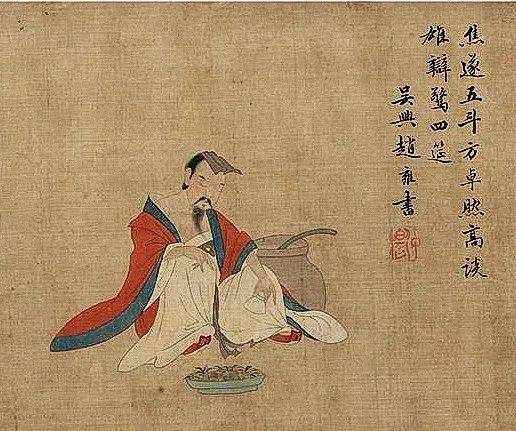 焦遂五斗方卓然高談
雄辯驚四筵
吳興趙雍書